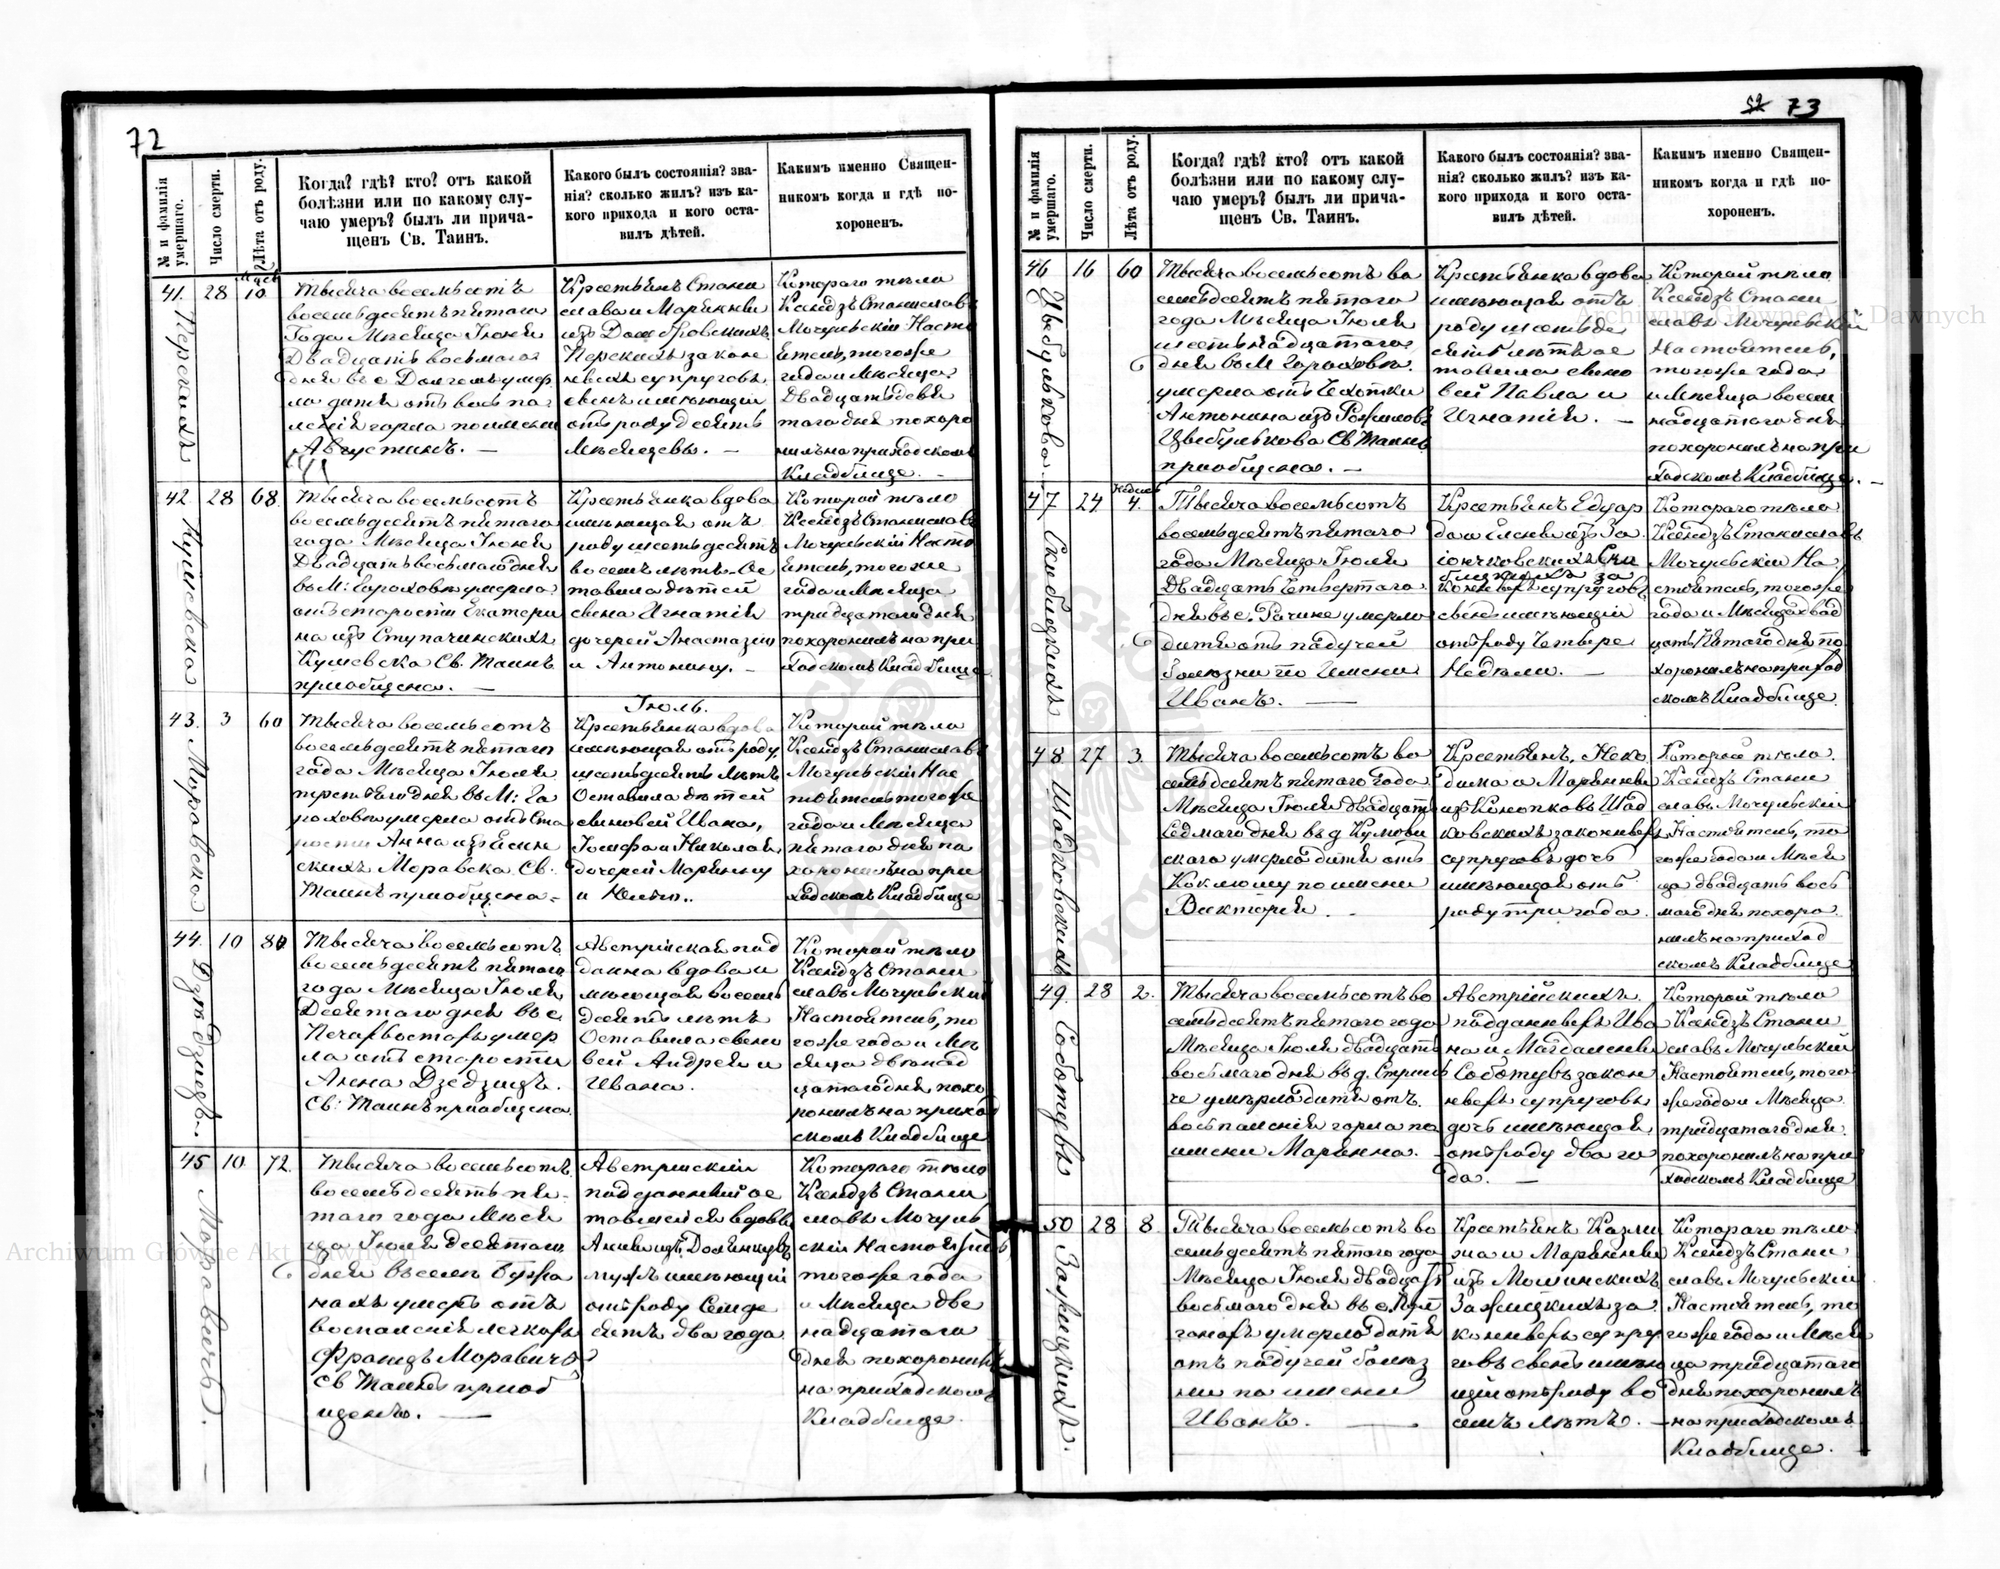 72
№ и фамилія умершаго.
Число смерти.
Лѣта отъ роду.
Когда? гдѣ? кто? отъ какой
болѣзни или по какому слу-
чаю умеръ? былъ ли прича-
щенъ Св. Таинъ.
Какого былъ состоянія? зва-
нія? сколько жилъ? изъ ка-
кого прихода и кого оста-
вилъ дѣтей.
Какимъ именно Священ-
никомъ когда и гдѣ по-
хороненъ.
41.
28
10
Тысяча восемьсотъ
восемьдесятъ пятаго
Года Мѣсяца Іюня
Двадцать восьмаго
дня въ с
ла дитя отъ воспа
ленія горла по имени
Августинъ. —
Крестьянъ Стани
слава и Марьянны
изъ Домбровскихъ
законныхъ супруговъ
сынъ имѣющій
отъ роду десять
Мѣсяцевъ. —
Котораго тѣло
Ксендзъ Станиславъ
Мочульскій Насто
ятель, тогоже
года и Мѣсяца
Двадцать девя
таго дня похоро
нилъ на приходскомъ
Кладбище. —
42.
28
68.
Тысяча восемьсотъ
восемьдесятъ пятаго
года Мѣсяца Іюня
Двадцать восьмаго дня
въ М: Гороховѣ умерла
отъ старости Екатери
на изъ Ступачинскихъ
Кушевска Св. Таинъ
приобщена. —
Крестьянка вдова
имѣющая отъ
роду шестьдесятъ
восемь лѣтъ. Ос
тавила дѣтей
сына Игнатія
дочерей Анастазію
и Антонину. —
Которой тѣло
Ксендзъ Станиславъ
Мочульскій Насто
ятель, тогоже
года и Мѣсяца
тридцатаго дня
похоронилъ на при
ходскомъ Кладбище
Іюль.
43.
3
60
Моравска
Тысяча восемьсотъ
восемьдесятъ пятаго
года Мѣсяца Іюля
третьяго дня въ М: Го
роховѣ умерла отъ ста
рости Анна
скихъ Моравска Св.
Таинъ приобщена. —
Крестьянка вдова
имѣющая отъ роду
шестьдесятъ лѣтъ
Оставила дѣтей
сыновей Ивана,
Іосифа и Николая
дочерей Марянну
и Юлію..
Которой тѣло
Ксендзъ Станиславъ
Мочульскій Нас
тоятель тогоже
года и Мѣсяца
пятаго дня по
хоронилъ на при
ходскомъ Кладбище
44.
10
80
Дзедзицъ.
Тысяча восемьсотъ
восемьдесятъ пятаго
года Мѣсяца Іюля
Десятаго дня въ с
умер
ла отъ старости
Анна Дзедзицъ.
Св: Таинъ приобщена.
Австрійская под
данна вдова и
мѣющая восемь
десятъ лѣтъ
Оставила сыно
вей Андрея и
Ивана.
Которой тѣло
Ксендзъ Стани
славъ Мочульскій
Настоятель, то
гоже года и Мѣ
сяца двѣнад
цатаго дня похо
ронилъ на приход
скомъ Кладбище
45
10
72.
Моравичъ. —
Тысяча восемьсотъ
восемьдесятъ пя
таго года Мѣся
ца Іюля десятаго
дня въ
нахъ умеръ отъ
воспаленія легкихъ
Францъ Моравичъ
Св Таинъ приоб
щенъ. —
Австрійскій
подданный ос
тавшейся вдовы
мужъ имѣющій
отъ роду Семьде
сятъ два года
Котораго тѣло
Ксендзъ Стани
славъ Мочуль
скій Настоятель
тогоже года
и Мѣсяца две
надцатаго
дня похоронилъ
на приходскомъ
Кладбище.
73
№ и фамилія умершаго.
Число смерти.
Лѣта отъ роду.
Когда? гдѣ? кто? отъ какой
болѣзни или по какому слу-
чаю умеръ? былъ ли прича-
щенъ Св. Таинъ.
Какого былъ состоянія? зва-
нія? сколько жилъ? изъ ка-
кого прихода и кого оста-
вилъ дѣтей.
Какимъ именно Священ-
никомъ когда и гдѣ по-
хороненъ.
46
16
60
Цвебулькова.
Тысяча восемьсотъ во
семьдесятъ пятаго
года Мѣсяца Іюля
шестьнадцатаго
дня въ М Гороховѣ
умерла отъ Чахотки
Антонина изъ
Цвебулькова Св Таинъ
приобщена. —
Крестьянка вдова
имѣющая отъ
роду шестьде
сятъ лѣтъ ос
тавила сыно
вей Павла и
Игнатія. —
Которой тѣло
Ксендзъ Стани
славъ Мочульскій
Настоятель,
тогоже года
и Мѣсяца восем
надцатаго дня
похоронилъ на при
ходскомъ Кладбище. —
47
24
4.
Скибицкихъ
Тысяча восемьсотъ
восемьдесятъ пятаго
года Мѣсяца Іюля
Двадцать Четвертаго
дня въ с. Рачине умерло
дитя отъ падучей
болѣзни по Имени
Иванъ. —
Крестьянъ Едуар
да и
законныхъ супруговъ
сынъ имѣющій
отъ роду Четыре
Недели. —
Котораго тѣло
Ксендзъ Станиславъ
Мочульскій На
стоятель, тогоже
года и Мѣсяца двад
цать Пятаго дня по
хоронилъ на приход
скомъ Кладбище
48
27
3.
Шадковскихъ
Тысяча восемьсотъ во
семьдесятъ пятаго года
Мѣсяца Іюля двадцать
Седмаго дня въ д
умерло дитя отъ
Коклюшу по имени
Викторія. —
Крестьянъ, Нико
дима и Марьянны
изъ Конопковъ Шад
ковскихъ законныхъ
супруговъ дочь
имѣющая отъ
роду три года.
Которой тѣло
Ксендзъ Стани
славъ Мочульскій
Настоятель, то
гоже года и Мѣся
ца двадцать вось
маго дня похоро
нилъ на приход
скомъ Кладбище
49.
28
2.
Тысяча восемьсотъ во
семьдесятъ пятаго года
Мѣсяца Іюля двадцать
восьмаго дня въ д.
умерло дитя отъ
воспаленія горла по
имени Марянна.
Австрійскихъ
подданныхъ Ива
на и Магдалены
закон
ныхъ супруговъ
дочь имѣющая
отъ роду два го
да. —
Которой тѣло
Ксендзъ Стани
славъ Мочульскій
Настоятель, того
же года и Мѣсяца
тридцатаго дня
похоронилъ на при
ходскомъ Кладбище
50
28
8.
Тысяча восемьсотъ во
семьдесятъ пятаго года
Мѣсяца Іюля двадцать
восьмаго дня въ с
умерло дитя
отъ падучей болѣз
ни по имени
Иванъ. —
Крестьянъ Кази
и Марьянны
изъ Мошинскихъ
за
конныхъ супру
говъ сынъ имѣю
щій отъ роду во
семъ лѣтъ. —
Котораго тѣло
Ксендзъ Стани
славъ Мочульскій
Настоятель, то
гоже года и Мѣся
ца тридцатаго
дня похоронилъ
на приходскомъ
Кладбище.
Archiwum Główne Akt Dawnych
Archiwum Główne Akt Dawnych